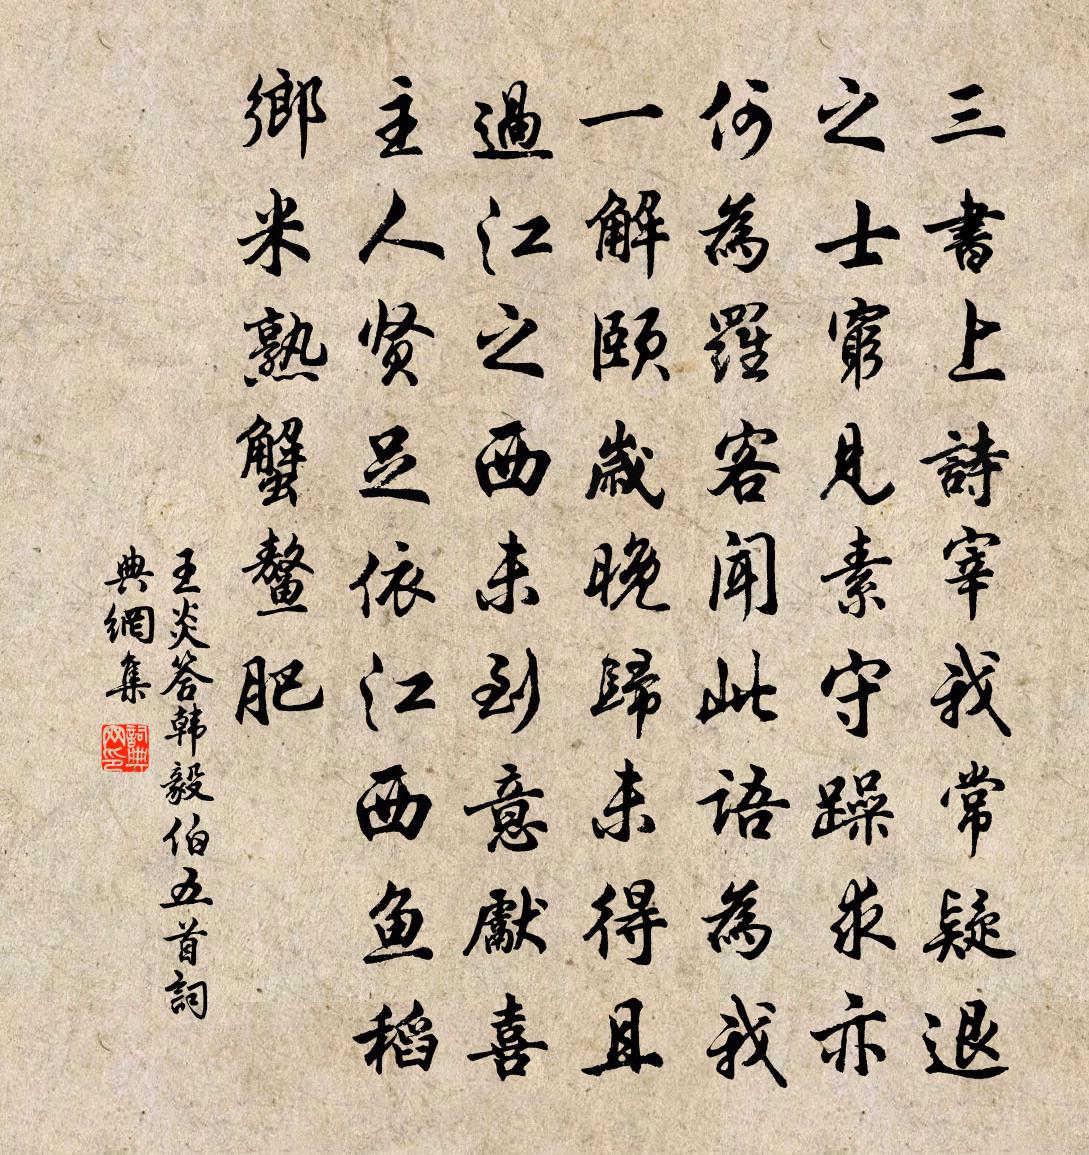 三書上詩宰我常疑退
之士窮見素守躁求亦
何為羅客闻此語為我
一解頤歲晚歸未得且
過江之西未到意獻喜
主人贤足依江西鱼稻
鄉米熟蟹鳌肥
王炎答韩毅伯五首詞
典網集
詞典网印